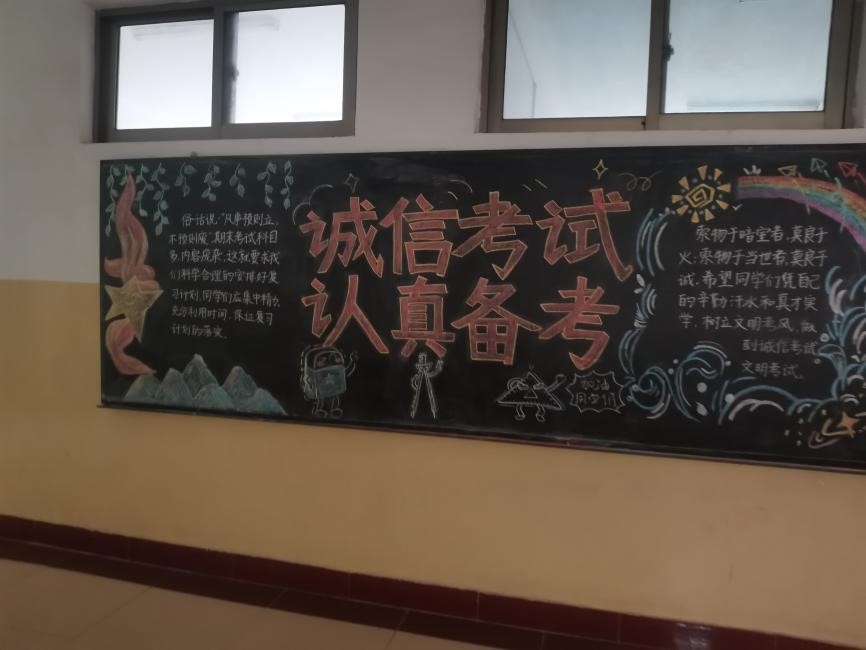 俗话说“凡事预则立，
不预则废”期末考试科目
多，内容庞杂，这就要求我
们科学合理的安排好复
习计划，同学们应集中精力，
充分利用时间，保证复习
计划的落实。
诚信考试
认真备考
加油
同学们
索物于暗室者，莫良于
火；索物于当世者，莫良于
诚，希望同学们凭自己
的辛勤汗水和真才实
学，树立文明考风，做
到诚信考试
文明考试。